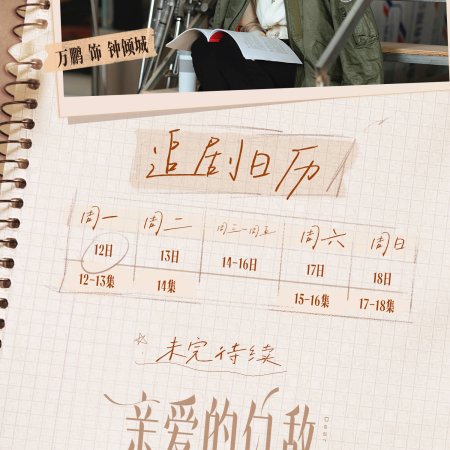 万鹏 饰 钟倾城
追剧日历
周一 周二 周三-周五 周六 周日
12日 13日 14-16日 17日 18日
12-13集 14集 15-16集 17-18集
未完待续
亲爱的仇敌
Dear